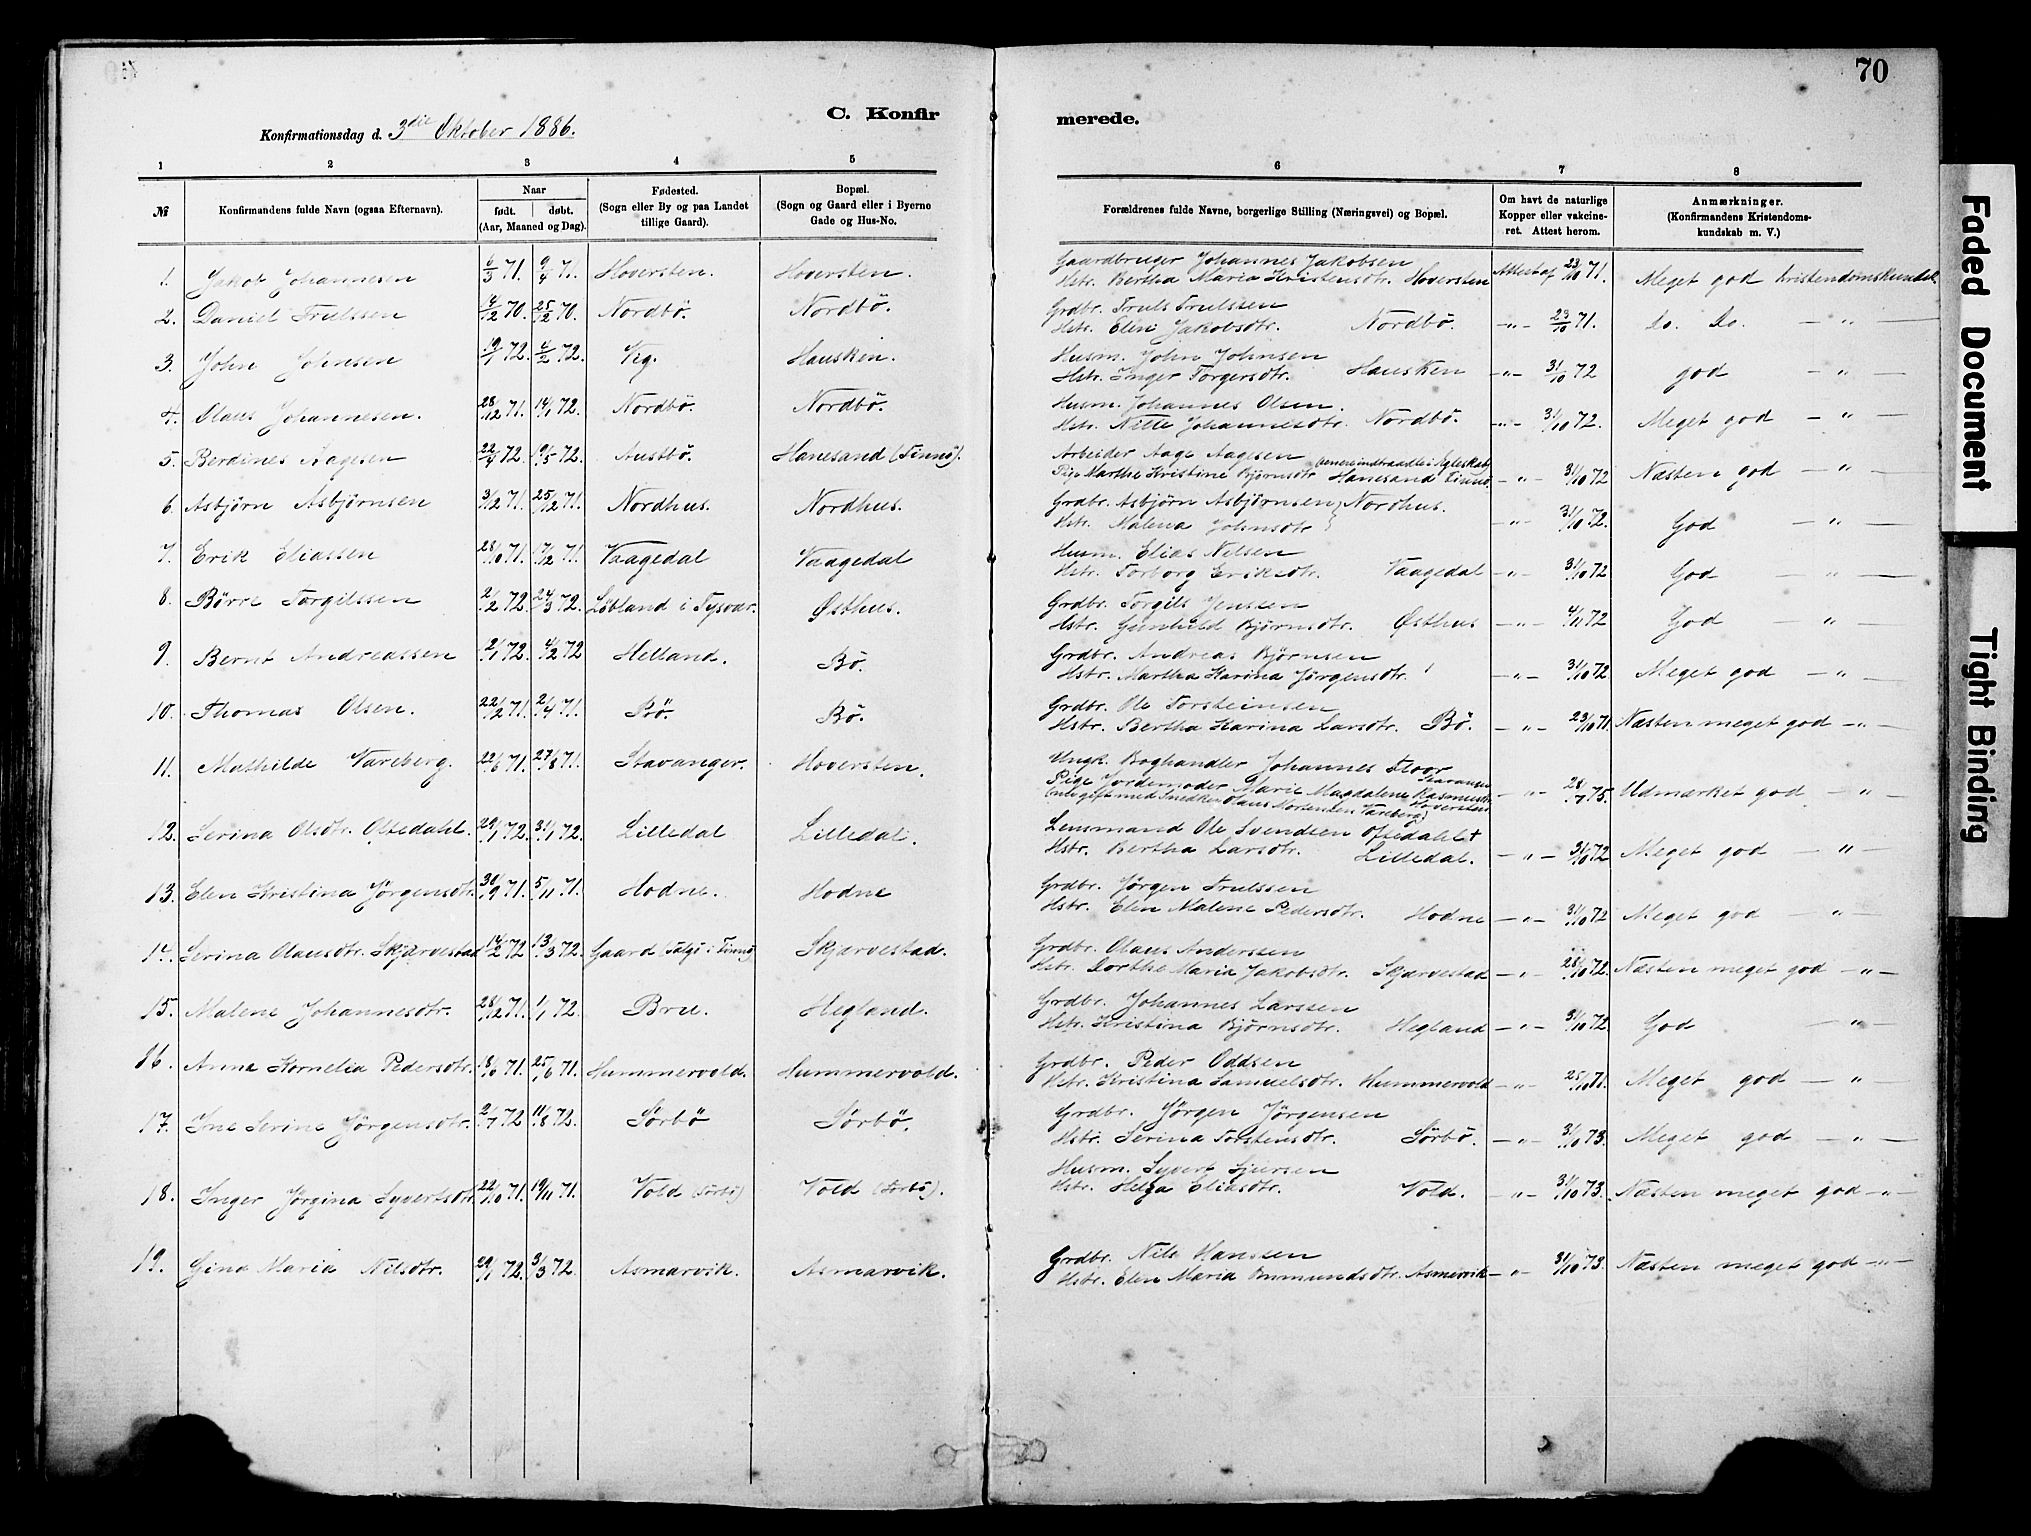 70
C. Konfirmerede.
Konfirmationsdag d. 3die Oktober 1886.
1 2 3 4 5 6 7 8
№ Konfirmandens fulde Navn (ogsaa Efternavn). Naar født. døbt. (Aar, Maaned og Dag). Fødested. (Sogn eller By og paa Landet tillige Gaard). Bopæl. (Sogn og Gaard eller i Byerne Gade og Hus-No. Forældrenes fulde Navne, borgerlige Stilling (Næringsvei) og Bopæl. Om havt de naturlige Kopper eller vakcineret. Attest herom. Anmærkninger. (Konfirmandens Kristendomskundskab m. V.)
1. Jakob Johannesen 6/3 71. 9/4 71. Hoversten. Hoversten. Gaardbruger Johannes Jakobsen
Hstr. Bertha Maria Kristensdtr. Hoversten Attest af 23/10 71. Meget god kristendomskundsk.
2. Daniel Trulssen 4/12 70. 25/12 70. Nordbö. Nordbö. Grdbr. Truls Trulssen
Hstr. Elen Jakobsdtr. Nordbö. -„- 23/10 71. Do. Do. — „ —
3. John Johnsen 19/1 72. 4/2 72. Vig. Hausken. Husm. John Johnsen
Hstr. Inger Torgersdtr. Hausken -„- 31/10 72 god — „ —
4. Olaus Johannesen. 28/12 71. 14/1 72. Nordbö. Nordbö. Husm. Johannes Olsen.
Hstr. Nille Johannesdtr. Nordbö. -„- 31/10 72. Meget god — „ —
5. Berdines Aagesen 22/4 72. 19/5 72. Austbö. Hanesand (Finnö). Arbeider Aage Aagesen
Pige Marthe Kristine Bjørnsdtr (senere indtraadte i Egteskab) Hanesand Finnö. -„- 31/10 72 Næsten god — „ —
6. Asbjörn Asbjörnsen 3/12 71. 25/12 71. Nordhus. Nordhus. Grdbr. Asbjörn Asbjörnsen } Nordhus.
Hstr. Malena Johnsdtr -„- 31/10 72. God — „ —
7. Erik Eliassen 28/10 71. 17/12 71. Vaagedal Vaagedal Husm. Elias Nilsen
Hstr. Torborg Eriksdtr. Vaagedal -„- 31/10 72 God — „ —
8. Börre Torgilssen 2/2 72. 24/3 72. Löbland i Tysvær. Østhus. Grdbr. Torgils Jenssen
Hstr. Gunhild Bjørnsdtr. Østhus -„- 4/11 72 God — „ —
9. Bernt Andreassen 2/1 72. 4/2 72 Helland. Bö. Grdbr. Andreas Bjørnsen
Hstr. Martha Karina Jörgensdtr. -„- 31/10 72. Meget god — „ —
10. Thomas Olsen. 22/2 71. 2/4 71. Bö. Bö. Grdbr. Ole Torsteinsen
Hstr. Bertha Karina Larsdtr. Bö. -„- 23/10 71. Næsten meget god -„-
11. Mathilde Vareberg. 22/6 71. 27/8 71. Stavanger. Hoversten. Ungk. Boghandler Johannes Floor Stavanger
Pige Jordemoder Marie Magdalene Rasmusdtr
(nu gift med Snedker Olaus Mortensen Vareberg) Hoversten -„- 28/7 75. Udmærket god — „ —
12. Serina Olsdtr. Oftedahl. 29/1 72. 31/1 72. Lilledal Lilledal. Lensmand Ole Svendsen Oftedahl +
Hstr. Bertha Larsdtr. Lilledal. -„- 31/10 72 Meget god — „ —
13. Elen Kristina Jörgensdtr. 30/9 71. 5/11 71. Hodne. Hodne Grdbr. Jörgen Trulssen
Hstr. Elen Malene Pedersdtr. Hodne -„- 31/10 72 Meget god — „
14. Serina Olausdtr. Skjærvestad 14/2 72 13/3 72. Gaard (Talgö i Finnö) Skjærvestad. Grdbr. Olaus Anderssen
Hstr. Dorthe Maria Jakobsdtr. Skjærvestad -„- 28/10 72. Næsten meget god -„-
15. Malene Johannesdtr. 28/12 71. 1/1 72. Bru. Hegland. Grdbr. Johannes Larssen
Hstr. Kristina Bjørnsdtr. Hegland -„- 31/10 72. God — „ —
16. Anna Kornelia Pedersdtr. 18/6 71. 25/6 71. Hummervold. Hummervold. Grdbr. Peder Oddsen
Hstr. Kristina Samuelsdtr. Hummervold -„- 25/10 71. Meget god — „
17. Ine Serine Jörgensdtr. 2/7 72 11/8 72. Sörbö Sörbö. Grdbr. Jörgen Jörgensen
Hstr. Serina Torstensdtr. Sörbö. -„- 31/10 73. Meget god — „ —
18. Inger Jörgina Syvertsdtr. 22/10 71. 19/11 71. Vold (Sörbö) Vold (Sörbö). Husm. Syvert Sjursen
Hstr. Helga Eliasdtr. Vold. -„- 31/10 73. Næsten meget god -„-
19. Gina Maria Nilsdtr. 29/1 72. 3/3 72. Asmarvik. Asmarvik. Grdbr. Nils Hanssen
Hstr. Elen Maria Ommundsdtr. Asmervik -„- 31/10 73. Næsten meget god -„-
Faded Document
Tight Binding